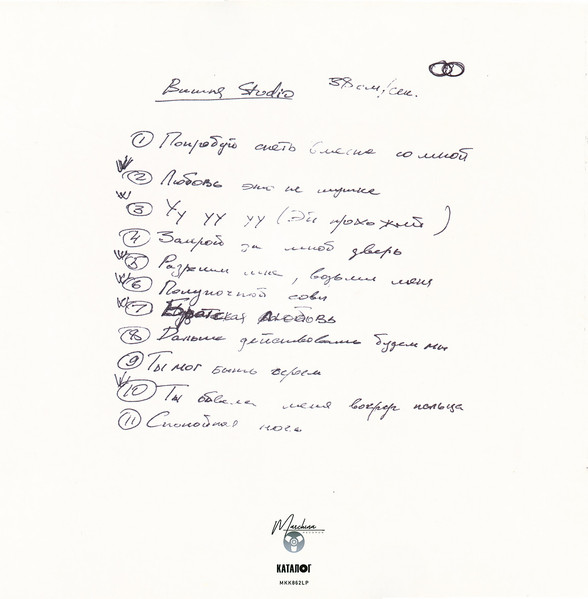 Вишня Studio 38 см/сек.
1 Попробуй спеть вместе со мной
2 Любовь это не шутка
3 Уу уу уу (Эй прохожий)
4 Закрой за мной дверь
5 Разреши мне, возьми меня
6 Полуночной совы
7 Братская любовь
8 Дальше действовать будем мы
9 Ты мог быть героем
10 Ты меня вокруг пальца
11 Спокойная ночь
Maschina
RECORDS
КАТАЛОГ
MKK862LP